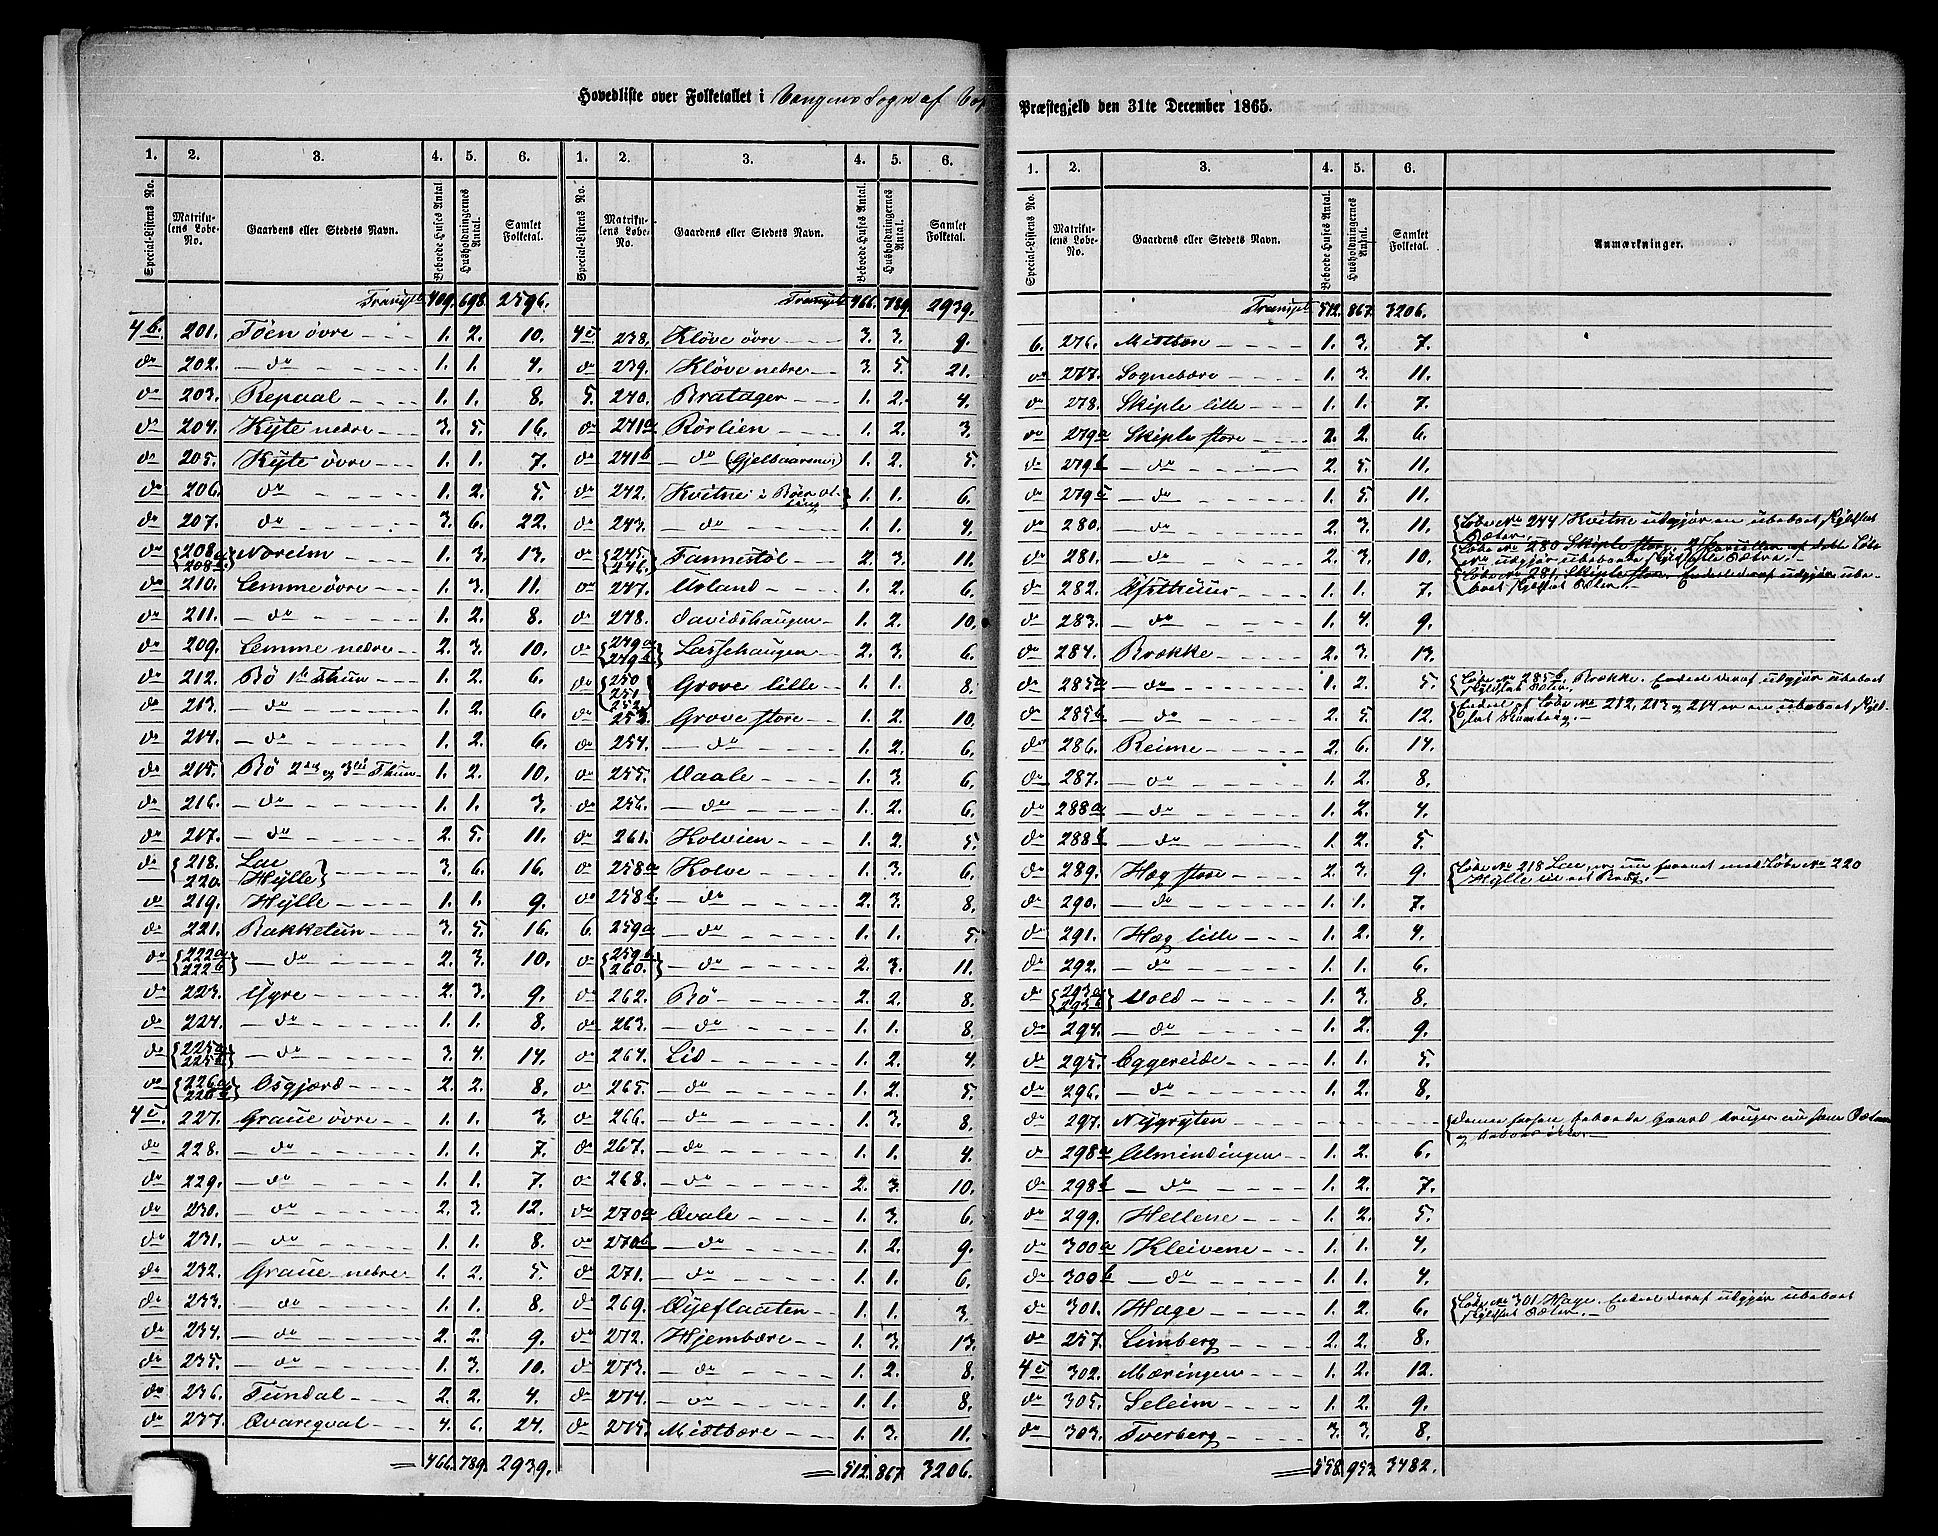 Hovedliste over Folketallet i Vangens Sogn af Vos
Præstegjeld den 31te December 1865.
1. 2. 3. 4. 5. 6. 1. 2. 3. 4. 5. 6.
Special-Listens No. Matrikulens Løbe-No. Gaardens eller Stedets Navn. Beboede Huses Antal. Husholdningernes Antal. Samlet Folketal. Special-Listens No. Matrikulens Løbe-No. Gaardens eller Stedets Navn. Beboede Huses Antal. Husholdningernes Antal. Samlet Folketal.
Transpt. 409. 698. 2596. Transpt. 466. 789. 2939.
4b. 201. Töen övre 1. 2. 10. 4c 238. Klöve övre 3. 3. 9.
do 202. do 1. 1. 4. do 239. Klöve nedre 3. 5. 21.
do 203. Repaal 1. 1. 8. 5. 240. Bratager 1. 2. 4.
do 204. Kyte nedre 3. 5. 16. do 241a Rörlien 1. 2. 3.
do 205. Kyte övre 1. 1. 7. do 241b do (Gjelbaarene) 1. 2. 5.
do 206. do 1. 2. 5. do 242. Kvitne i 1. 1. 6.
do 207. do 3. 6. 22. do 243. do 1. 1. 4.
do 208a 208b Noreim 1. 3. 13. do 245. 246. Fannestöl 2. 3. 11.
do 210. Lemme övre 1. 3. 11. do 247. Urland 1. 2. 6.
do 211. do 1. 2. 8. do 248. Davidshaugen 1. 2. 10.
do 209. Lemme nedre 2. 3. 10. do 249a 249b Lassehaugen 2. 3. 6.
do 212. Bö 1ste Thun 1. 2. 6. do 250 251 252 Grove lille 1. 1. 8.
do 213. do 1. 2. 6. do 253. Grove store 1. 2. 10.
do 214. do 1. 2. 6. do 254. do 1. 2. 6.
do 215. Bö 2det og 3die Thun 1. 2. 10. do 255. Uaale 1. 3. 6.
do 216. do 1. 1. 3. do 256. do 1. 2. 6.
do 217. do 2. 5. 11. do 261. Kolvien 1. 2. 5.
do 218. 220. Lae Hylle 3. 6. 16. do 258a Kolve 1. 3. 6.
do 219. Hylle 1. 1. 9. do 258b do 2. 3. 8.
do 221. Rokketun 3. 5. 16. 6. 259a do 1. 1. 5.
do 222a 222b do 2. 3. 10. do 259b 260. do 2. 3. 11.
do 223. Ygre 2. 3. 9. do 262. Bö 2. 2. 8.
do 224. do 1. 1. 8. do 263. do 1. 1. 8.
do 225a 225b do 3. 4. 14. do 264. Lid 1. 2. 4.
do 226a 226b Osgjerd 2. 2. 8. do 265. do 1. 2. 5.
4c 227. Graue övre 1. 1. 3. do 266. do 1. 3. 8.
do 228. do 1. 1. 7. do 267. do 1. 1. 4.
do 229. do 1. 1. 7. do 268. do 2. 3. 10.
do 230. do 2. 3. 12. do 270a Qvale 1. 3. 6.
do 231. do 1. 1. 8. do 270b do 1. 2. 9.
do 232. Graue nedre 1. 2. 5. do 271. do 1. 1. 6.
do 233. do 1. 1. 8. do 269. Öyeflaaten 1. 1. 3.
do 234. do 2. 2. 9. do 272. Hjembære 1. 3. 13.
do 235. do 1. 3. 10. do 273. do 1. 2. 8.
do 236. Tundal 2. 2. 4. do 274. do 1. 1. 8.
do 237. Qvareqval 4. 6. 24. do 275. Midtbære 1. 3. 11.
466. 789. 2939. 512. 867. 3206.
1. 2. 3. 4. 5. 6.
Special-Listens No. Matrikulens Løbe-No. Gaardens eller Stedets Navn. Beboede Huses Antal. Husholdningernes Antal. Samlet Folketal. Anmærkninger.
Transpt. 512. 867. 3206.
6. 276. Midtbære 1. 3. 7.
do 277. Sognebære 1. 3. 11.
do 278. Skiple lille 1. 1. 7.
do 279a Skiple store 2. 2. 6.
do 279b do 2. 5. 11.
do 279c do 1. 5. 11.
do 280. do 2. 3. 11. Löbe No 244 Kvitne udgjör en ubeboet Kyldslat Sæter.
do 281. do 2. 3. 10. Löbe No 280 Skiple store, 2 Parceller af dette Löbe No udgjör ubeboede Sæter.
do 282. Afsthuus 1. 1. 7. Löbe No 281, Skiple store, Endeel deraf udgjör ubeboet Sæter.
do 283. do 1. 4. 9.
do 284. Brække 2. 3. 13.
do 285a do 1. 2. 5. Löbe No 285b Brække. Endeel deraf udgjör ubeboet Sæter.
do 285b do 2. 5. 12. Endeel af Löbe No 212, 213 og 214 er en ubeboet
do 286. Reime 2. 6. 14.
do 287. do 1. 2. 8.
do 288a do 1. 2. 4.
do 288b do 1. 2. 5.
do 289. Hæg store 2. 3. 9. Löbe No 218 Lae, er nu forenet med Löbe No 220 Hylle til eet Brug.
do 290. do 1. 1. 7.
do 291. Hæg lille 1. 2. 4.
do 292. do 1. 1. 6.
do 293a 293b Mold 1. 3. 8.
do 294. do 1. 2. 9.
do 295. Eggereide 1. 1. 5.
do 296. do 1. 2. 8.
do 297. Nygryten Denne forhen beboede Gaard bruges nu som Sæter og beboes ikke.
do 298a Almindingen 1. 2. 6.
do 298b do 1. 2. 7.
do 299. Hellene 1. 2. 5.
do 300a Kleivene 1. 1. 4.
do 300b do 1. 1. 4.
do 301. Hage 1. 2. 6. Löbe No 301 Hage. Endeel deraf udgjör ubeboet Sæter.
do 257. Limberg 2. 2. 8.
4c 302. Mæringen 1. 2. 12.
do 305. Seleim 1. 2. 9.
do 303. Tverberg 3. 3. 8.
558. 953. 3482.